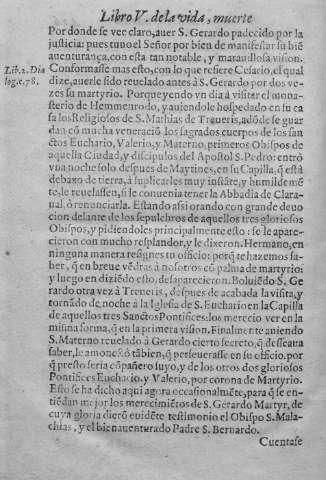 Libro V. de la vida, muerte
Por donde se vee claro, auer S. Gerardo padecido por la
justicia: pues tuuo el Señor por bien de manifestar su biē
auenturança, con esta tan notable, y marauillosa vision.
Lib. 2. Dia
log. c. 78.
Conformasse mas esto, con lo que refiere Cesario, el qual
dize, auerle sido reuelado antes à S. Gerardo por dos ve
zes su martyrio. Porque yendo vn dia à visitar el mona-
sterio de Hemmenrodo, y auiendole hospedado en su ca
sa los Religiosos de S. Mathias de Treueris, adōde se guar
dan cō mucha veneraciō los sagrados cuerpos de los san
ctos Euchario, Valerio, y Materno, primeros Obispos de
aquella Ciudad, y discipulos del Apostol S. Pedro: entrò
vna noche solo despues de Maytines, en su Capilla, q̄ està
debaxo de tierra, à suplicarles muy instāte, y humildemē
te, le reuelassen, si le conuenia tener la Abbadia de Clara-
ual, ò renunciarla. Estando assi orando con grande deuo
cion delante de los sepulchros de aquellos tres gloriosos
Obispos, y pidiendoles principalmente esto: se le apare-
cieron con mucho resplandor, y le dixeron. Hermano, en
ninguna manera resignes tu officio: porq̄ te hazemos sa-
ber, q̄ en breue vēdras à nosotros cō palma de martyrio:
y luego en diziēdo esto, desaparecieron. Boluiēdo S. Ge
rardo otra vez à Treueris, despues de acabada la visita, y
tornādo de noche à la Iglesia de S. Euchario en la Capilla
de aquellos tres Sanctos Pontifices: los merecio ver en la
misma forma, q̄ en la primera vision. Finalmente auiendo
S. Materno reuelado à Gerardo cierto secreto, q̄ desseaua
saber, le amonestò tābien, q̄ perseuerasse en su officio, por
q̄ presto seria cōpañero suyo, y de los otros dos gloriosos
Pontifices Euchario, y Valerio, por corona de Martyrio.
Esto se ha dicho aqui agora occasionalmēte, para q̄ se en-
tiēdan mejor los merecimiētos de S. Gerardo Martyr, de
cuya gloria dierō euidēte testimonio el Obispo S. Mala-
chias, y el bienauenturado Padre S. Bernardo.
Cuentase